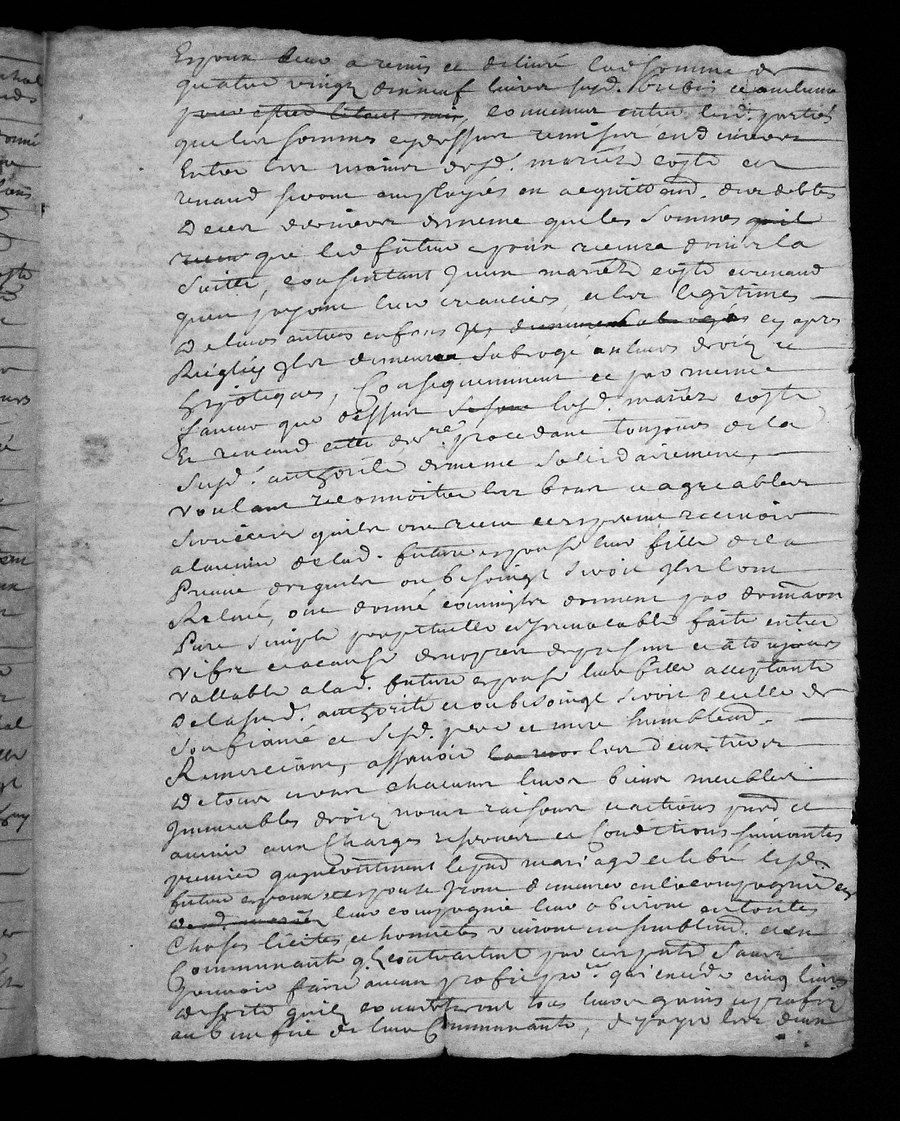 Espoux leur a remis et delivré lad somme de
quatre vingt dix neuf livres susd.
pour convenu entre lesd. parties
que les sommes cydessus remises
Entre les mains desd. mariés coste et
renaud seront employées en acquittem̄t. des debtes
De ces derniers de meme que les sommes quil
que led futur epoux pourra donner la
suitte, consentant yceux mariés coste et renaud
quen payant leurs creanciers, et les legitimes
De leurs autres enfans cy apres
Reiglés il demeure subrogé en leurs droitz et
hypoteques, Consequemment et par meme
faveur que dessus lesd. mariés coste
Et renaud procedant toujours de la
susd. authorité de meme solidairement,
voulant reconnoitre les bons et agreables
services quils ont receu et esperent recevoir
a lavenir de lad. future espouse leur fille de la
Preuve desquels ou besoingt seroit ils lont
Relevé, ont donné comme ils donnent par donnaōn
Pure simple perpetuelle et irrevocable faite entre
vifs et a cause de nopces des presant et a toujours
vallable a lad. future espouse leur fille acceptante
De la susd. authorité et ou besoingt seroit de celle de
Son fiancé et sesd. pere et mere humblem̄t.
Remerciant, assavoir les deux tiers
De tous et uns chacuns leurs biens meubles
Immeubles droitz noms raisons et actions pn̄ts et
avenir aux Charges reserves et Conditions suivantes
premier quincontinent le pn̄t mariage celebré lesd.
futurs espoux et espouse iront demeurer en la compagnie
leur compagnie leur obeiront en toutes
Choses licites et honnetes vivront ensemblem̄t. et en
Communauté quils contractent par ces pn̄tes sans
Pouvoir faire aucun profit par. qui excede cinq livres
De sorte quils tous leurs gains et profitz
au benefice de leur Communauté, de payer les deux